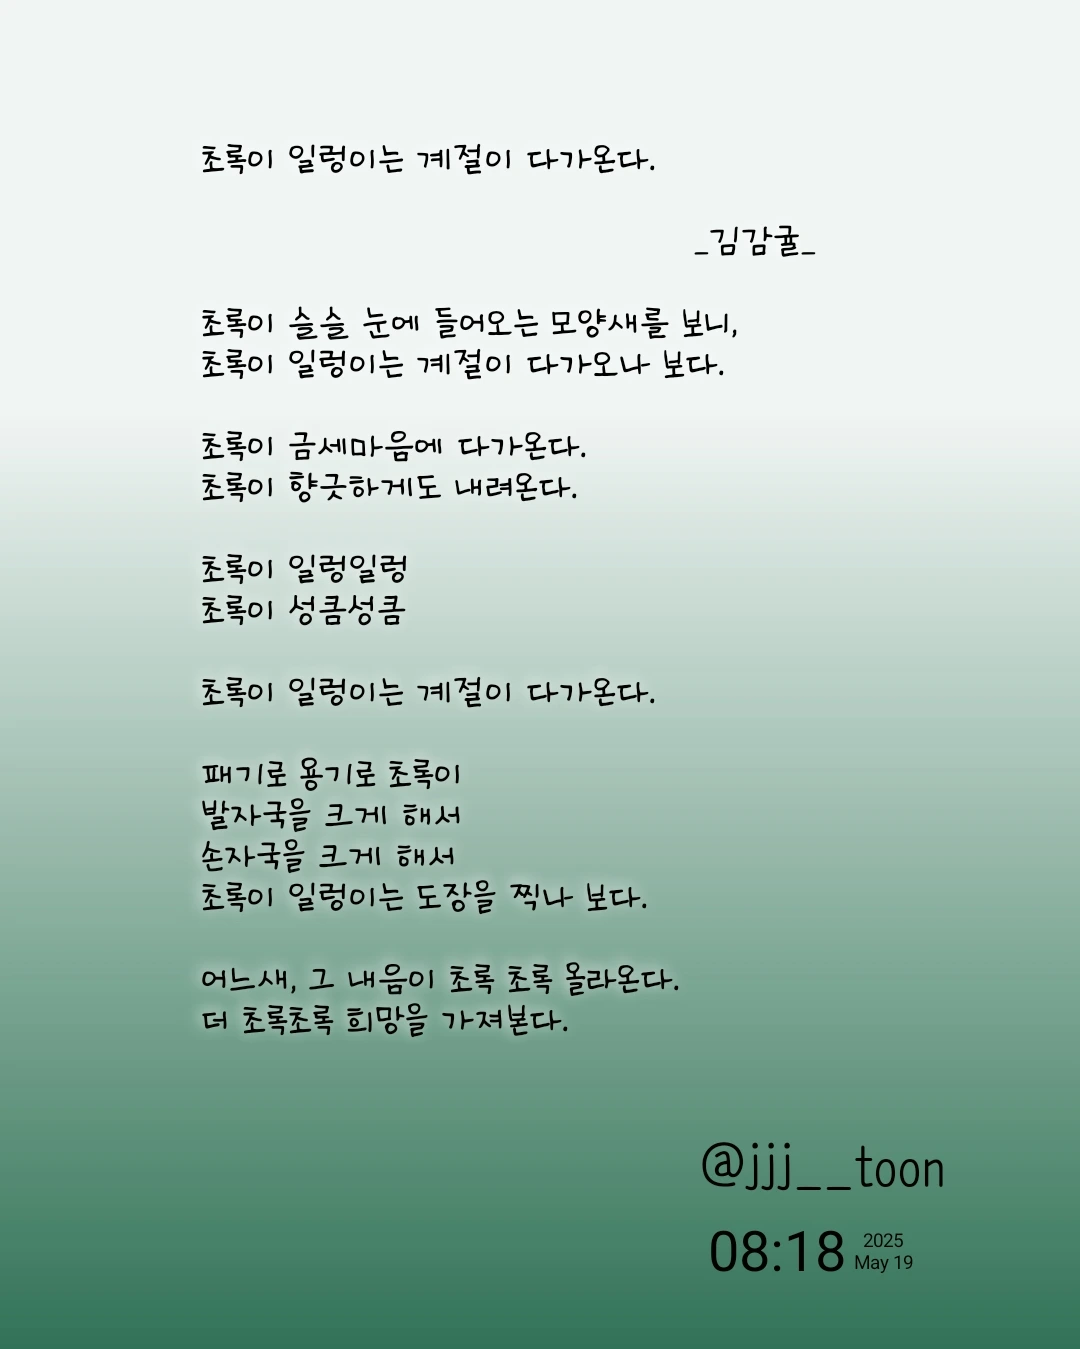 초록이 일렁이는 계절이 다가온다.
_김감귤_
초록이 슬슬 눈에 들어오는 모양새를 보니,
초록이 일렁이는 계절이 다가오나 보다.
초록이 금세마음에 다가온다.
초록이 향긋하게도 내려온다.
초록이 일렁일렁
초록이 성큼성큼
초록이 일렁이는 계절이 다가온다.
패기로 용기로 초록이
발자국을 크게 해서
손자국을 크게 해서
초록이 일렁이는 도장을 찍나 보다.
어느새, 그 내음이 초록 초록 올라온다.
더 초록초록 희망을 가져본다.
@jjj__toon
08:18 2025
May 19